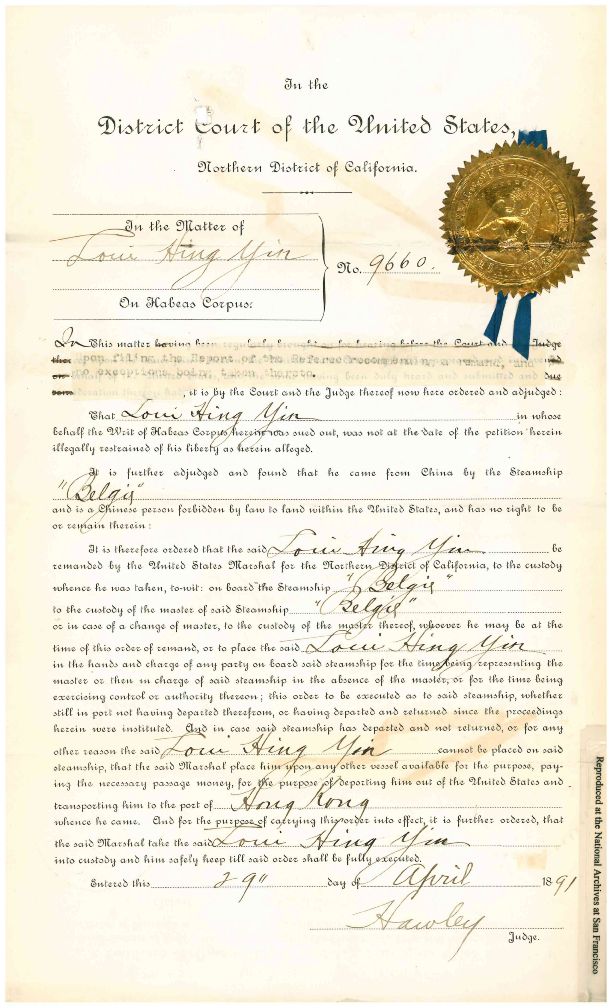 In the
District Court of the United States,
Northern District of California.
In the Matter of
Loui Hing Yin
No. 9660.
On Habeas Corpus:
In This matter having been regularly brought on for hearing before the Court and Judge
thereof upon filing the Report of the Referee recommending a remand, and
no exceptions being taken thereto. due
, it is by the Court and the Judge thereof now here ordered and adjudged:
That Loui Hing Yin in whose
behalf the Writ of Habeas Corpus herein was sued out, was not at the date of the petition herein
illegally restrained of his liberty as herein alleged.
It is further adjudged and found that he came from China by the Steamship
"Belgic"
and is a Chinese person forbidden by law to land within the United States, and has no right to be
or remain therein:
It is therefore ordered that the said Loui Hing Yin be
remanded by the United States Marshal for the Northern District of California, to the custody
whence he was taken, to-wit: on board the Steamship "Belgic"
to the custody of the master of said Steamship "Belgic"
or in case of a change of master, to the custody of the master thereof, whoever he may be at the
time of this order of remand, or to place the said Loui Hing Yin
in the hands and charge of any party on board said steamship for the time being representing the
master or then in charge of said steamship in the absence of the master, or for the time being
exercising control or authority thereon; this order to be executed as to said steamship, whether
still in port not having departed therefrom, or having departed and returned since the proceedings
herein were instituted. And in case said steamship has departed and not returned, or for any
other reason the said Loui Hing Yin cannot be placed on said
steamship, that the said Marshal place him upon any other vessel available for the purpose, pay-
ing the necessary passage money, for the purpose of deporting him out of the United States and
transporting him to the port of Hong Kong
whence he came. And for the purpose of carrying this order into effect, it is further ordered, that
the said Marshal take the said Loui Hing Yin
into custody and him safely keep till said order shall be fully executed.
Entered this 29" day of April 1891
Hawley
Judge.
Reproduced at the National Archives at San Francisco